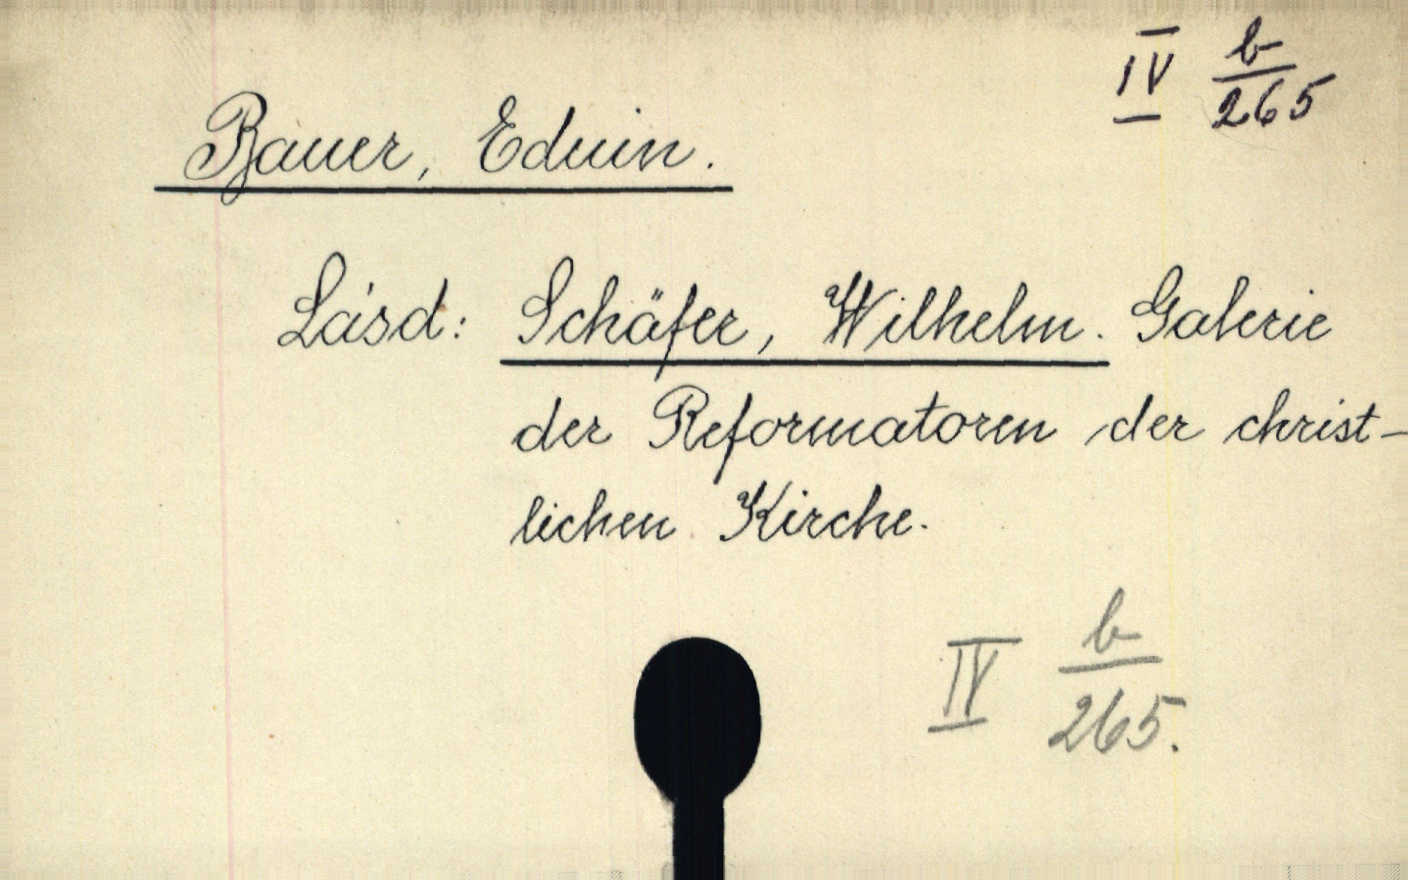 IV b/265
Bauer, Eduin.
Lásd: Schäfer, Wilhelm. Galerie
der Reformatoren der christ-
lichen Kirche.
IV b/265.